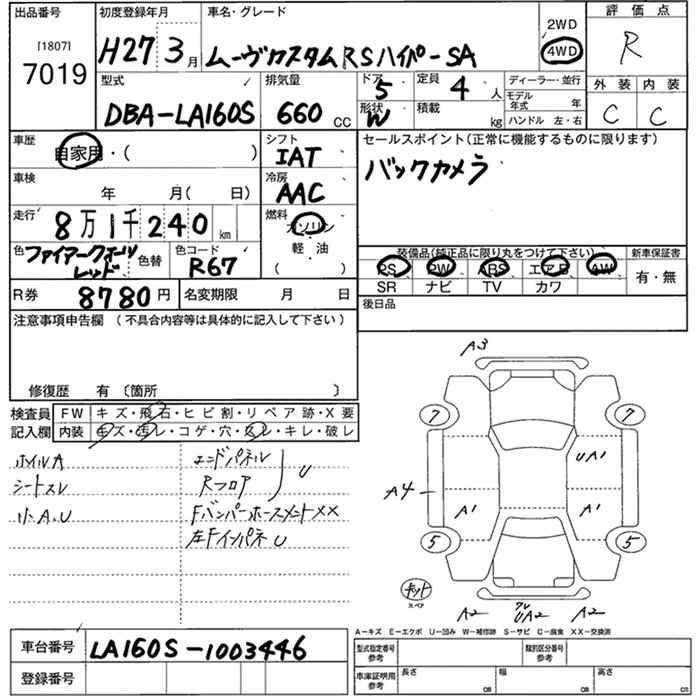 出品番号 初度登録年月 車名・グレード 2WD 4WD 評価点
[1807]
7019 H27 3月 ムーヴカスタムRSハイパーSA R
型式 排気量 ドア 定員 ディーラー・並行 外装 内装
DBA-LA160S 660 CC 5 4 人 モデル年式 年
形状 W 積載 kg ハンドル 左・右 C C
車歴 シフト セールスポイント(正常に機能するものに限ります)
自家用・( ) IAT バックカメラ
車検 年 月( 日) 冷房 AAC
走行 8万1千240 km 燃料 ガソリン
軽・油
( )
色 ファイアークォーツレッド 色替 色コード R67
装備品(純正品に限り丸をつけて下さい) 新車保証書
PS PW ABS エアB AW 有・無
SR ナビ TV カワ
R券 8780円 名変期限 月 日 後日品
注意事項申告欄 (不具合内容等は具体的に記入して下さい)
修復歴 有 〔箇所 〕
検査員 FW キズ・飛石・ヒビ割・リペア跡・X要
記入欄 内装 キズ・汚レ・コゲ・穴・スレ・キレ・破レ
ホイルA エンドパネル U
シートスレ Rフロア
小.A.U Fバンパーホースメント××
左Fインパネ U
A3
7 7
UA1
A4
A1 A1
5 5
キット
スペア
A2 UA2 A2
A-キズ E-エクボ U-凹み W-補修跡 S-サビ C-腐食 XX-交換済
車台番号 LA160S-1003446 型式指定番号 参考 類別区分番号 参考
登録番号 車庫証明用 参考 長さ cm 幅 cm 高さ cm